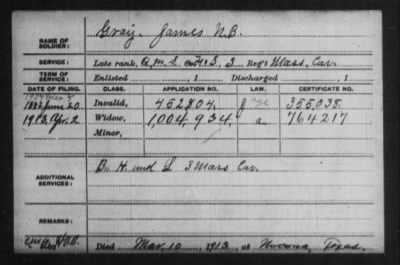 NAME OF SOLDIER: Gray, James N.B.
SERVICE: Late rank, Q.M.S. Co. F&S, 3 Reg't Mass. Cav.
TERM OF SERVICE: Enlisted , 1 Discharged , 1
DATE OF FILING. CLASS. APPLICATION NO. LAW. CERTIFICATE NO.
1882 June 20 Invalid, 452,804, 355,038.
1913, Apr. 2 Widow, 1,004,934, a. 764217
Minor,
ADDITIONAL SERVICES: B. H and L 3 Mass Cav.
REMARKS:
Died Mar. 10, 1913, at Nocona, Texas.